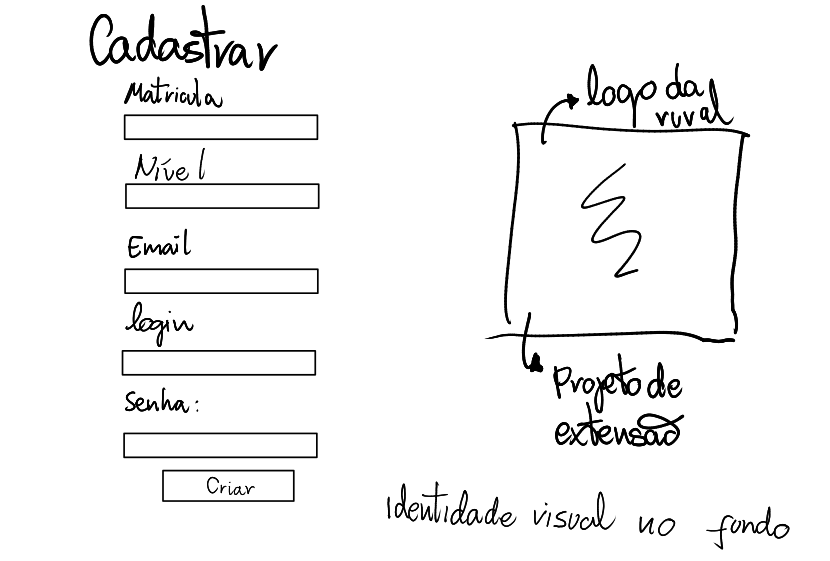 Cadastrar
Matricula
Nível
Email
login
Senha:
Criar
logo da
rural
Projeto de
extensão
Identidade visual no fundo